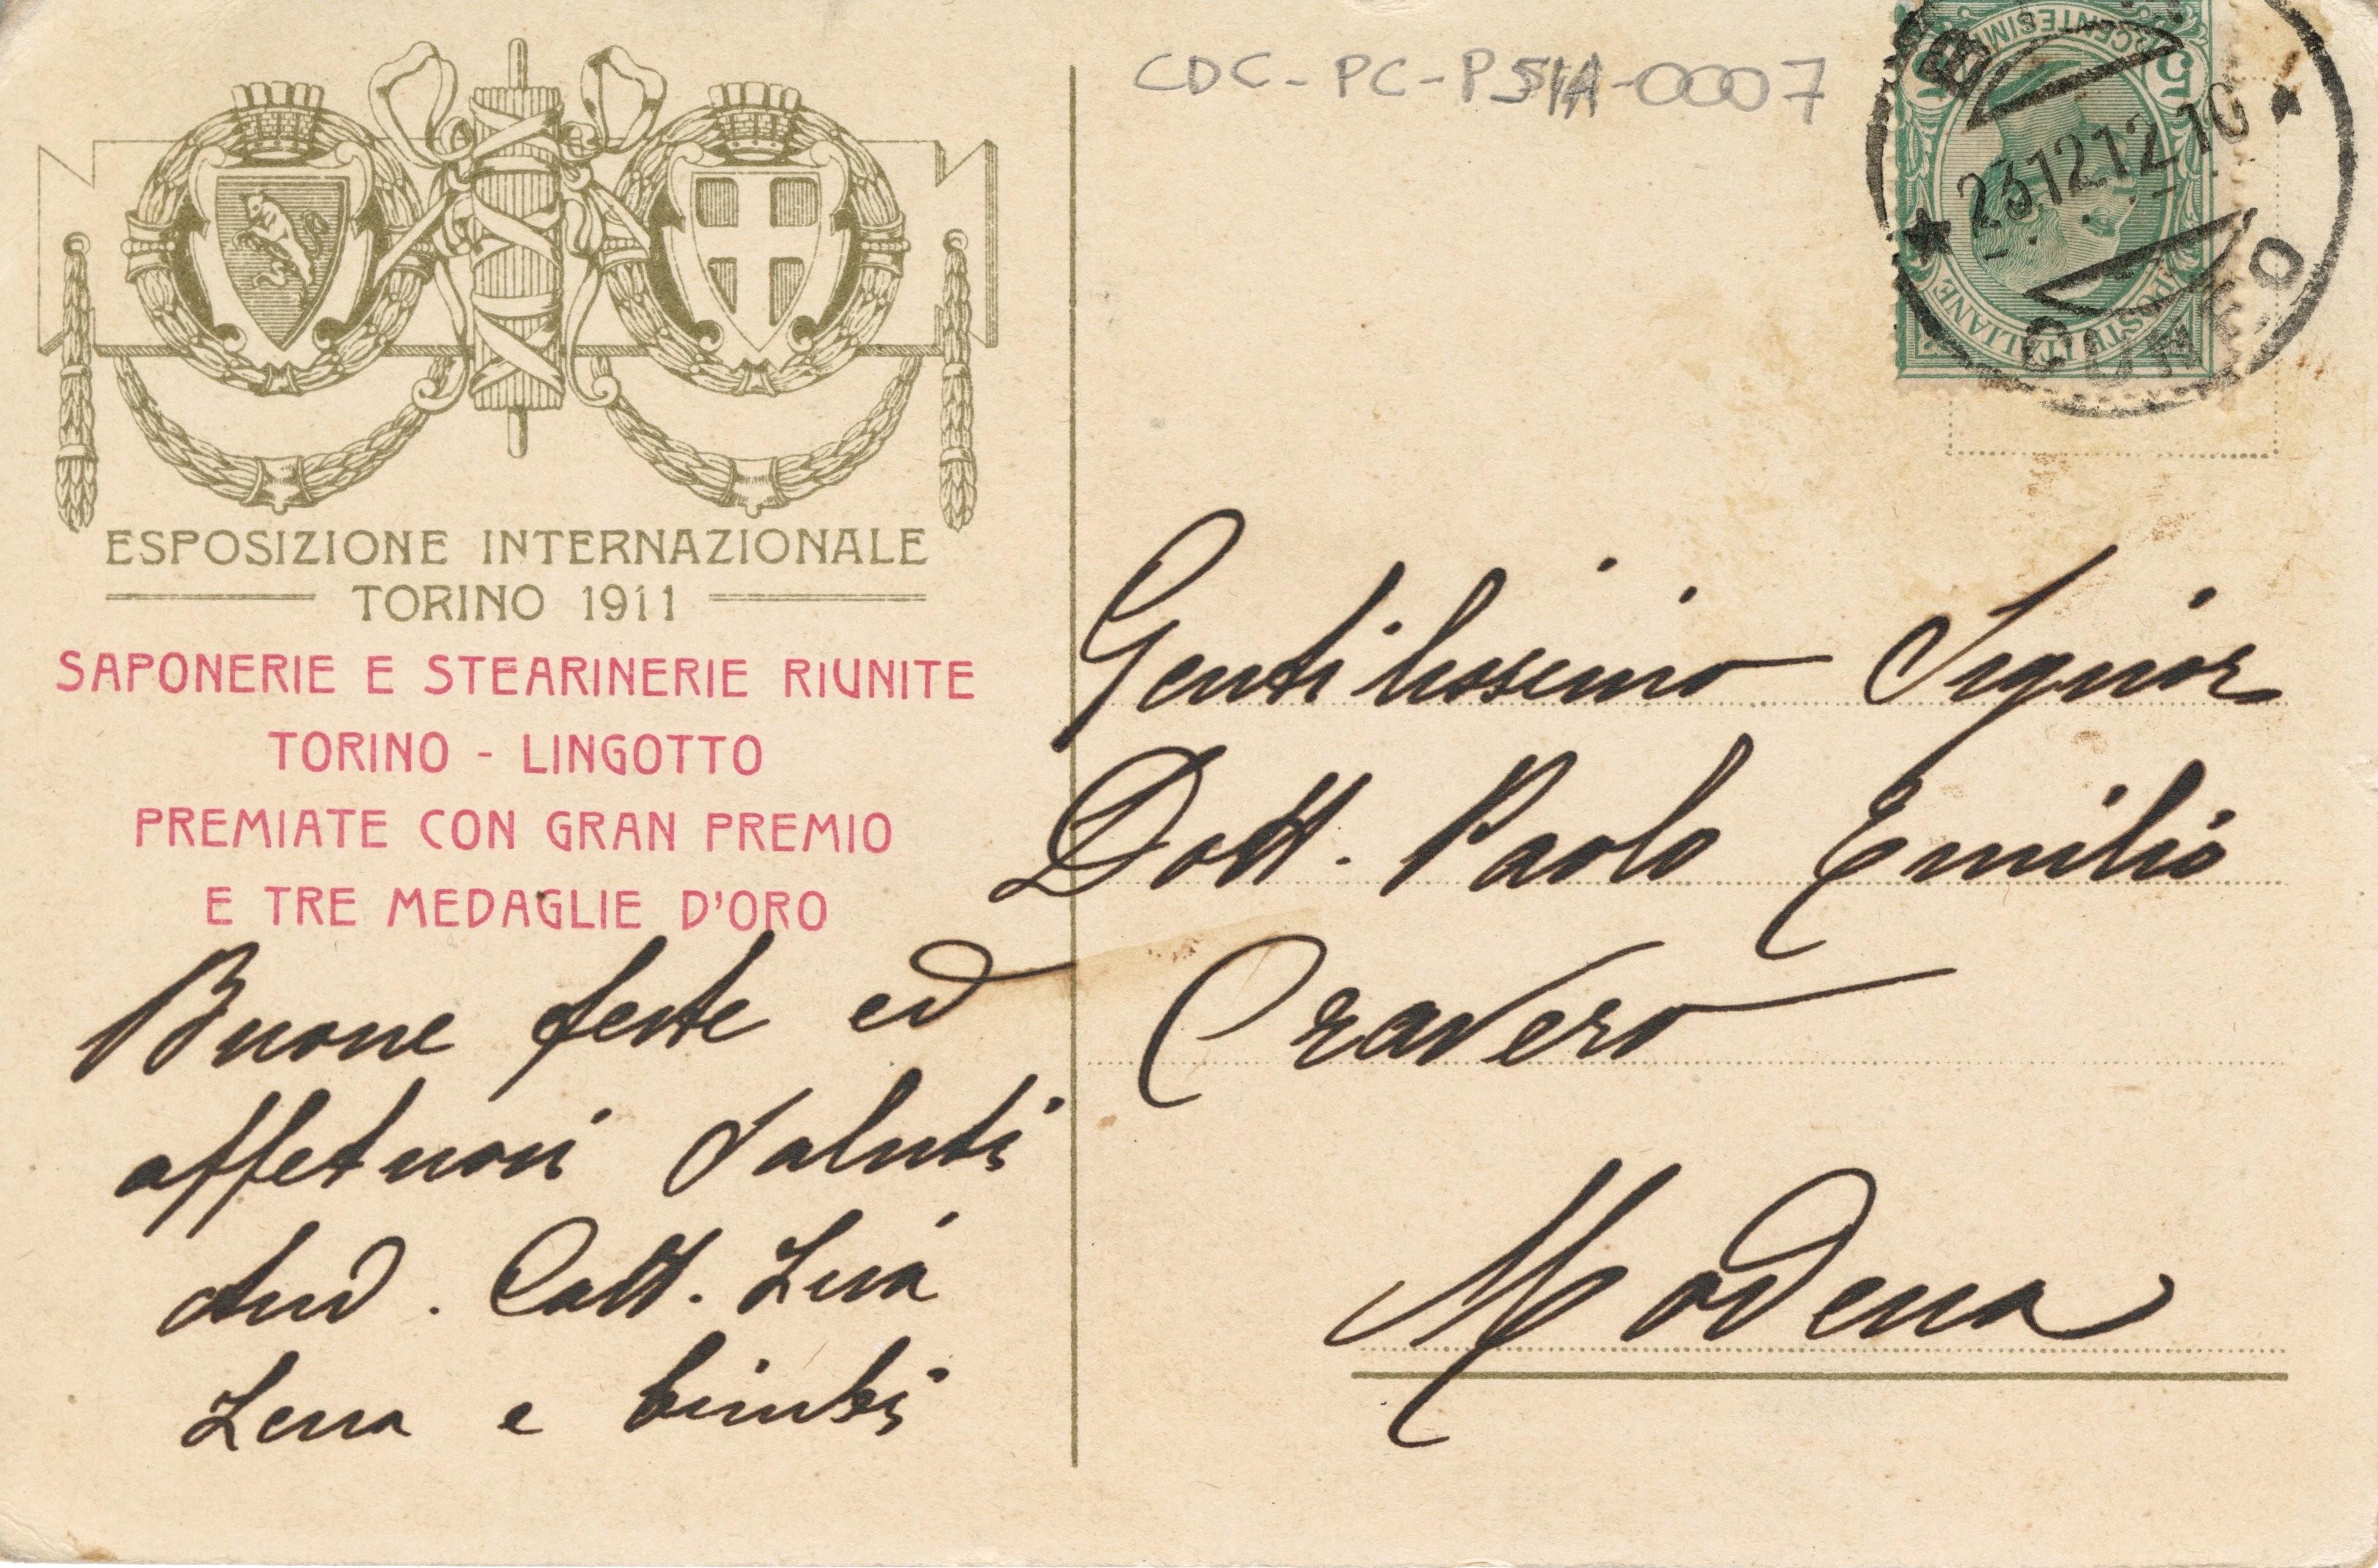 CDC-PC-PSIA-0007
5 CENTESIMI 5
POSTE ITALIANE
23.12.12.16
CUNEO
ESPOSIZIONE INTERNAZIONALE
TORINO 1911
SAPONERIE E STEARINERIE RIUNITE
TORINO - LINGOTTO
PREMIATE CON GRAN PREMIO
E TRE MEDAGLIE D'ORO
Buone feste ed
affetuosi Saluti
And. Catt. Lina
Lena e bimbi
Gentilissimo Signor
Dott. Paolo Emilio
Cravero
Modena